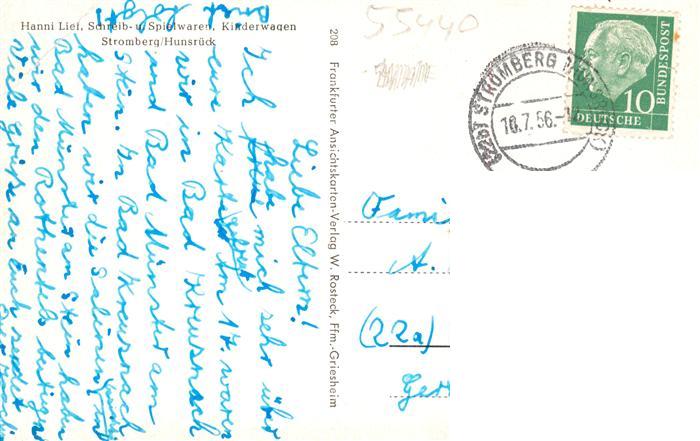 Hanni Lief, Schreib- u. Spielwaren, Kinderwagen
Stromberg/Hunsrück
Brief
folgt
Liebe Eltern!
Ich habe mich sehr über
eure Karte gefreut. Am 17. waren
wir in Bad Kreuznach
und Bad Münster am
Stein. In Bad Kreuznach
haben wir die Salinen und in
Bad Münster am Stein haben
wir den Rothenfels bestiegen
Viele Grüße an Euch sendet
208 Frankfurter Ansichtskarten-Verlag W. Rosteck, Ffm.-Griesheim
55440
STROMBERG
10.7.56.-
10
DEUTSCHE
BUNDESPOST
Fami
A.
(22a)
Ger